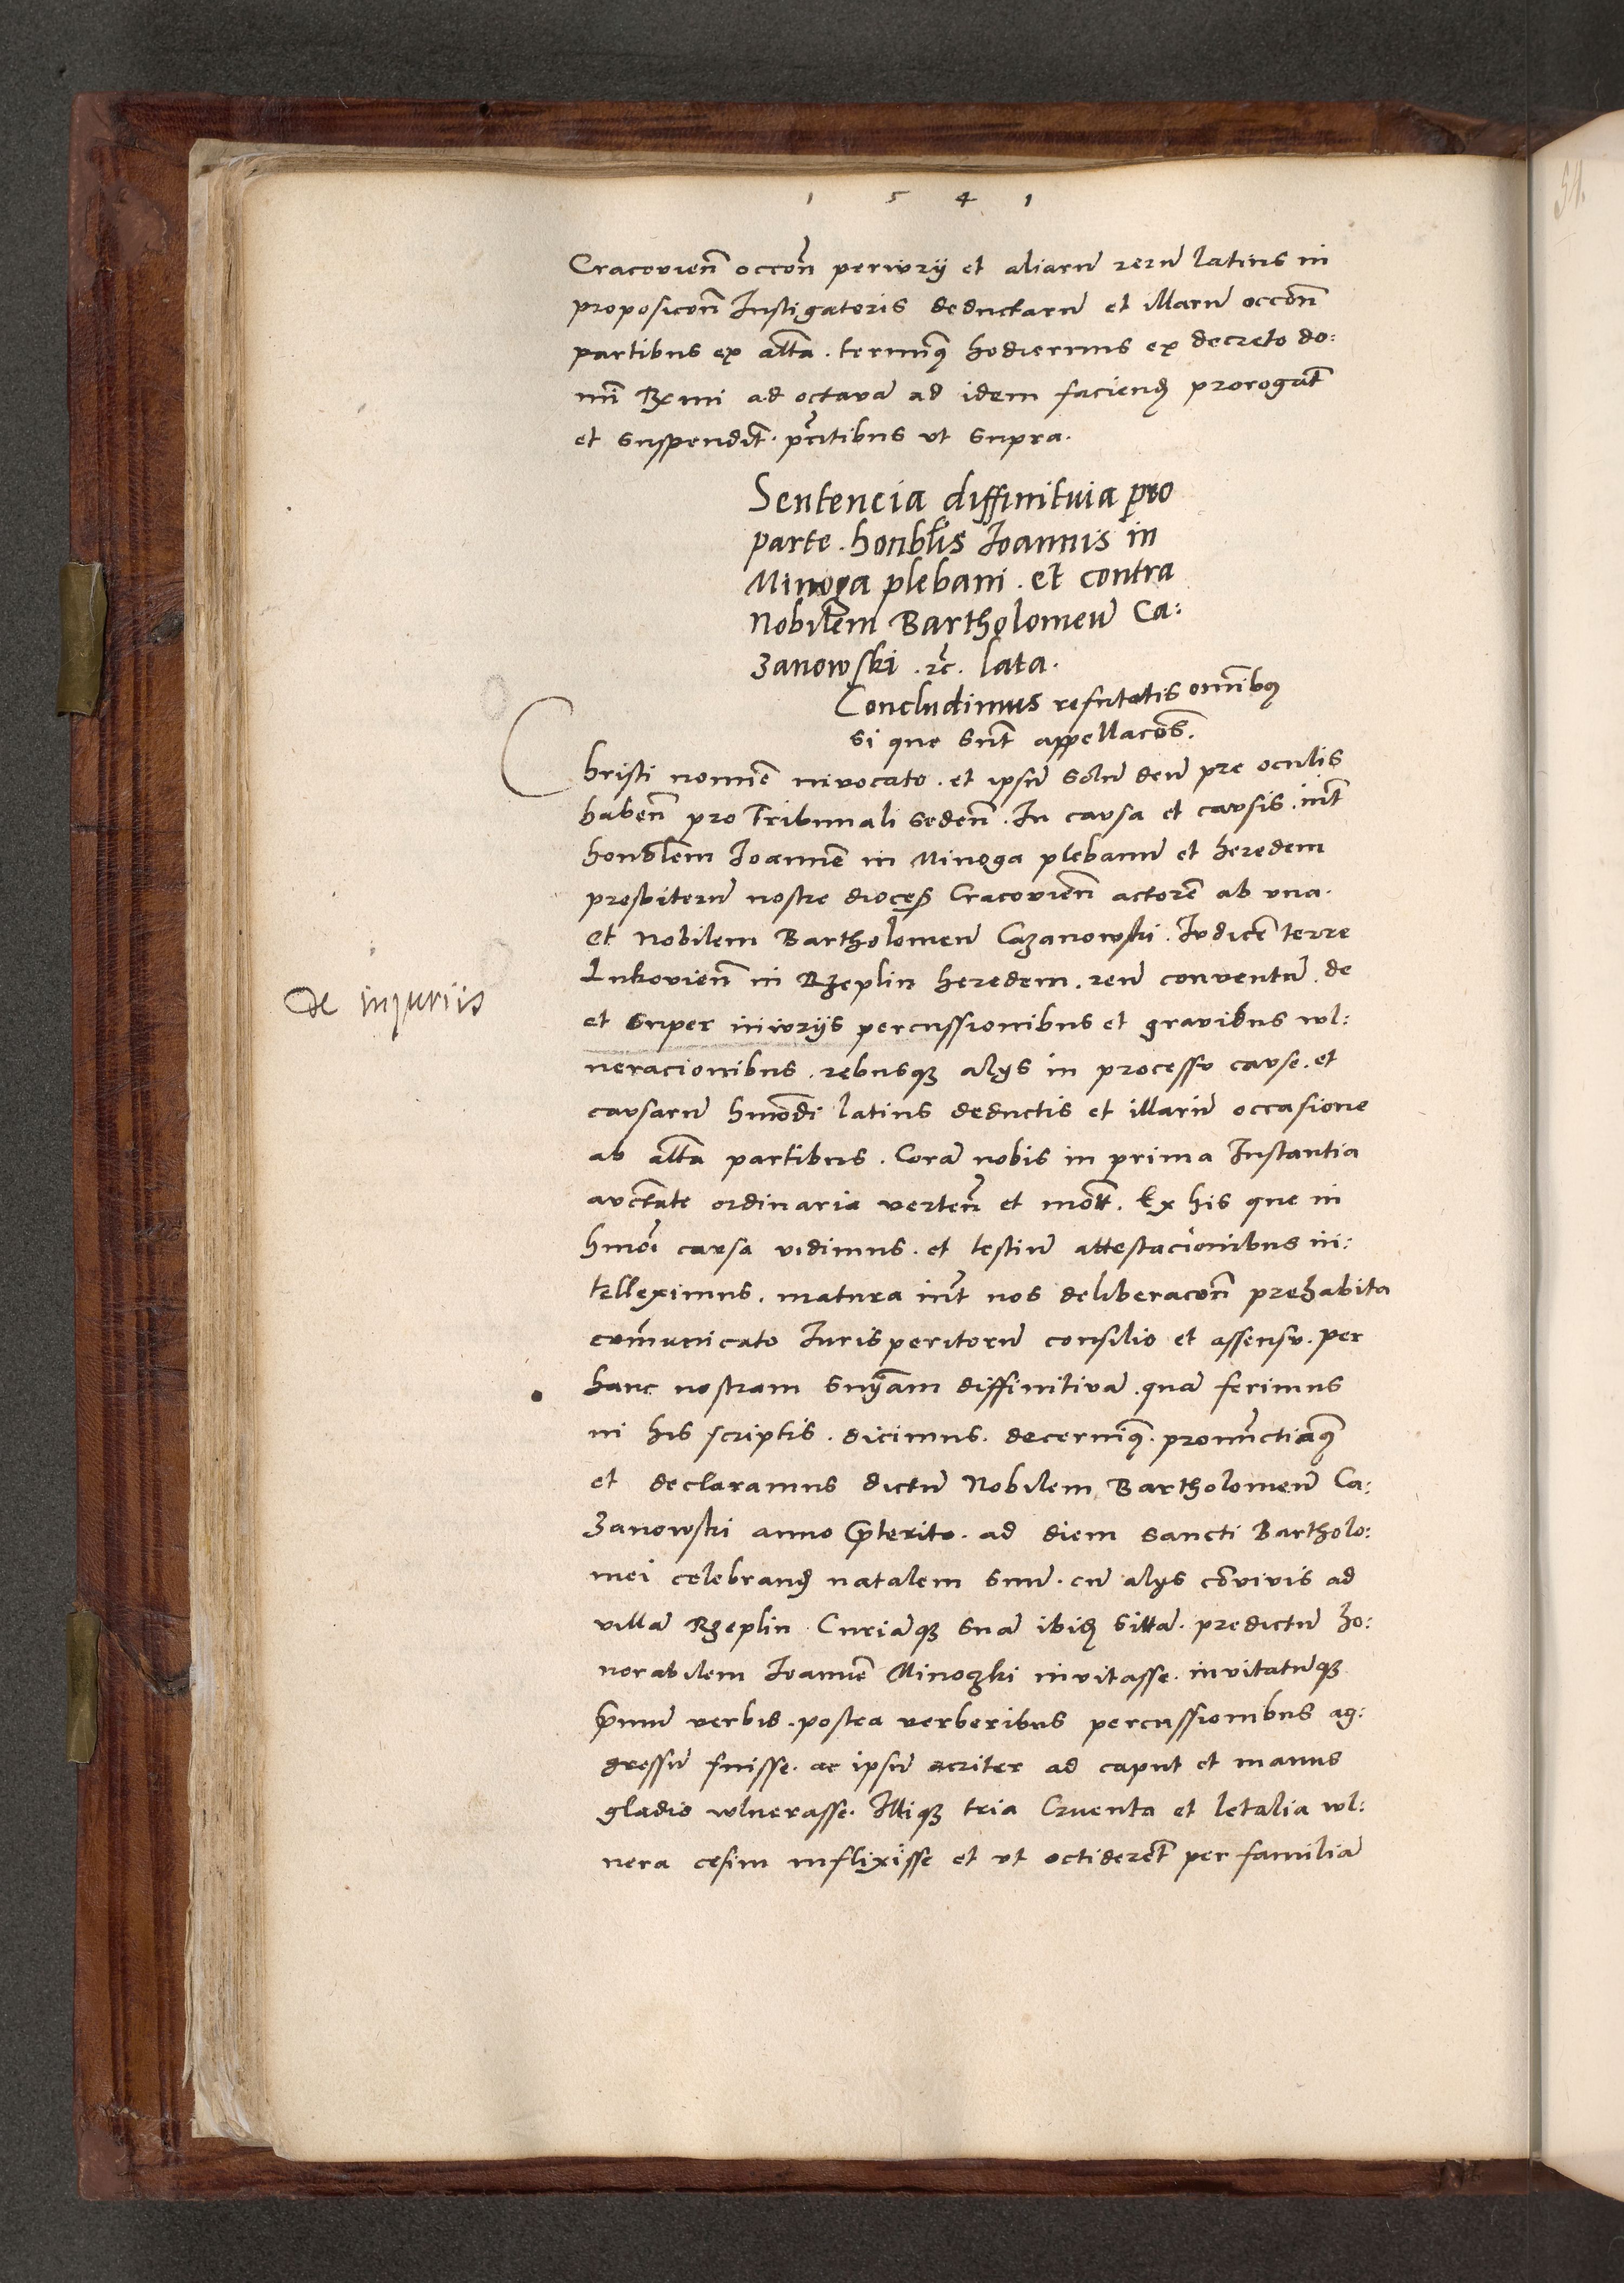 1 5 4 1
Cracovien̄ occon̄ periurij et aliarū rerū latius in
proposicon̄ Instigatoris deductarū et illarū occon̄
partibus ex alt̄a . terminꝯ hodiernus ex decreto do:
mi Rx̄mi ad octavā ad idem faciend̄ prorogat̄
et suspendit̄ . pn̄tibus ut supra .
Sentencia diffinitiuia pro
parte . honbl̄is Joannis in
Minoga plebani . et contra
Nobilem Bartholomeū Ca:
zanowski . ꝛc̄ . lata .
Concludimus refutatis om̄ibꝯ
si que sunt appellacōs .
Christi nomīe invocato . et ipsū solū deū pre oculis
haben̄ pro Tribunali seden̄ . In causa et causis . int̄
honbl̄em Joannē in Minoga plebanū et heredem
presbiterū nostre dioces̄ Cracovien̄ actorē ab una .
et Nobilem Bartholomeū Cazanowski . Judicē terre
Lukovien̄ in Rzeplin heredem . reū conventū . de
De injuriis
et super iniurijs percussionibus et gravibus vul:
neracionibus . rebusqꝫ alijs in processu cause . et
causarū hmōdi latius deductis et illarū occasione
ab alt̄a partibus . Corā nobis in prima Instantia
auctt̄ate ordinaria verten̄ et mot̄t . Ex his que in
hmōi causa vidimus . et testiū attestacionibus in:
telleximus . matura int̄ nos deliberacon̄ prehabita
com̄unicato Jurisperitorū consilio et assensu . per
hanc nostram sn̄iam diffinitivā . quā ferimus
in his scriptis . dicimus . decernimꝯ . pronunctiamꝯ
et declaramus dictū Nobilem Bartholomeū Ca:
zanowski anno p̄terito . ad diem sancti Bartholo:
mei celebrand̄ natalem suū . cū alijs cōvivis ad
villā Rzeplin Curiāqꝫ suā ibid̄ sittā . predictū ho:
norabilem Joannē Minoczki invitasse . invitatūqꝫ
p̄mū verbis . postea verberibus percussionibus ag:
gressū fuisse . ac ipsū acriter ad caput et manus
gladio vulnerasse . Illiqꝫ tria Cruenta et letalia vul:
nera cesim inflixisse et ut occideret̄ per familiā